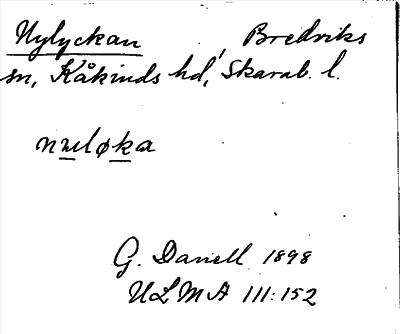 Nylyckan, Bredviks
sn, Kåkinds hd, Skarab. l.
nuløka
G. Danell 1898
ULMA 111:152